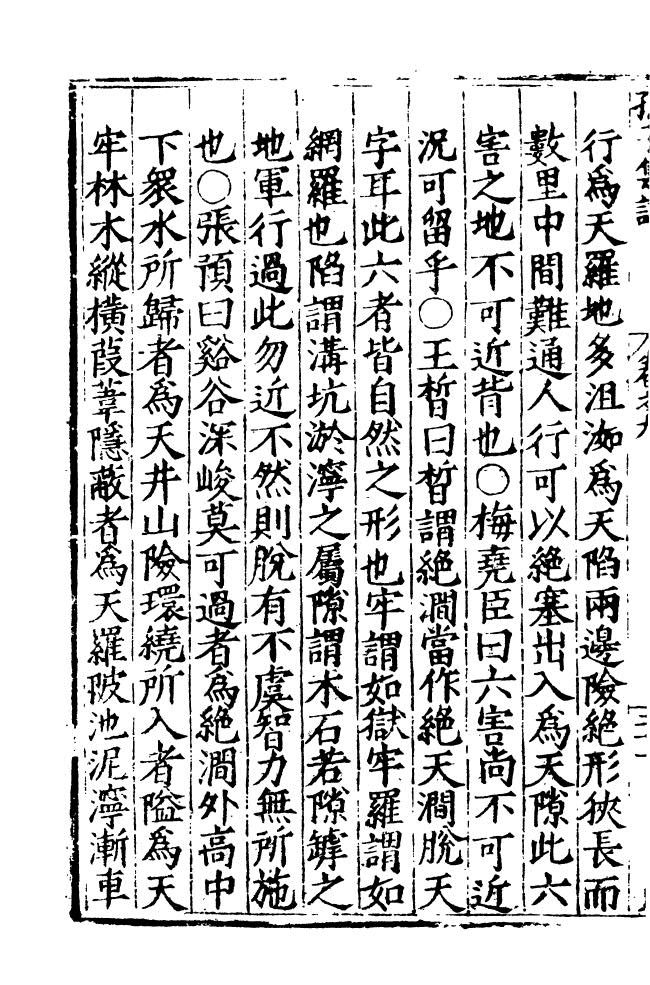 行爲天羅地多沮洳爲天陷兩邊險絶形狹長而
數里中間難通人行可以絶塞出入爲天隙此六
害之地不可近背也○梅堯臣曰六害尚不可近
況可留乎○王晳曰晳謂絶澗當作絶天澗脫天
字耳此六者皆自然之形也牢謂如獄牢羅謂如
網羅也陷謂溝坑淤濘之屬隙謂木石若隙罅之
地軍行過此勿近不然則脫有不虞智力無所施
也○張預曰谿谷深峻莫可過者爲絶澗外高中
下衆水所歸者爲天井山險環繞所入者隘爲天
牢林木縱橫葭葦隱蔽者爲天羅陂池泥濘漸車